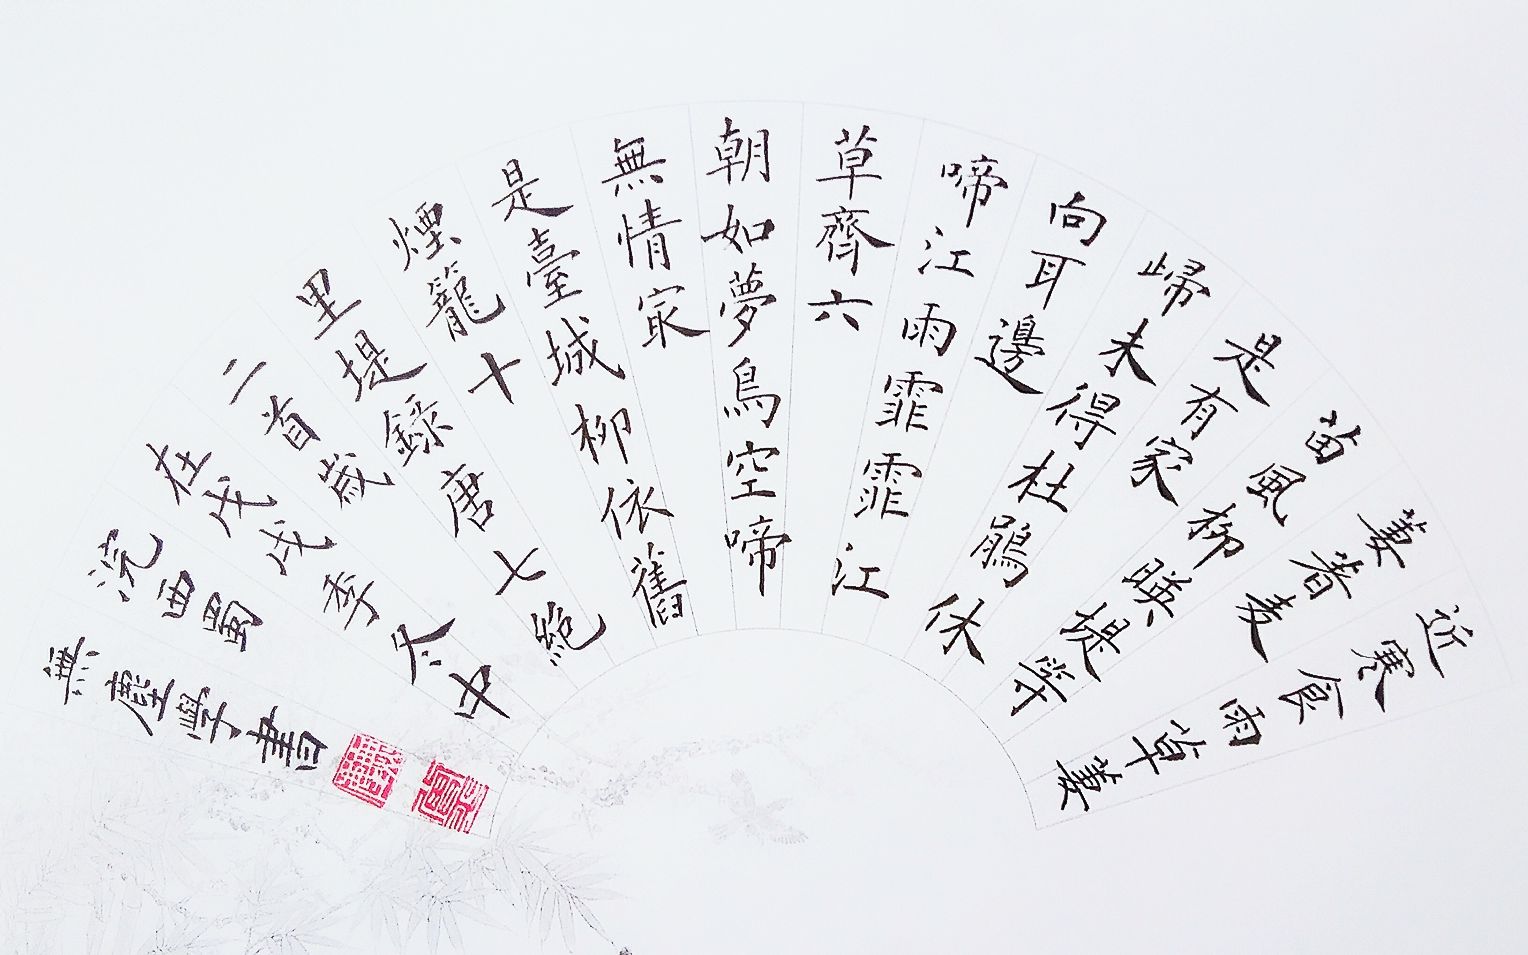 近寒食雨草萋
萋著麦
苗風柳暎堤等
是有家
歸未得杜鵑休
向耳邊
啼江雨霏霏江
草齊六
朝如夢鳥空啼
無情㝡
是臺城柳依舊
煙籠十
里堤錄唐七絕
二首歲
在戊戌季冬中
浣西蜀
無塵學書